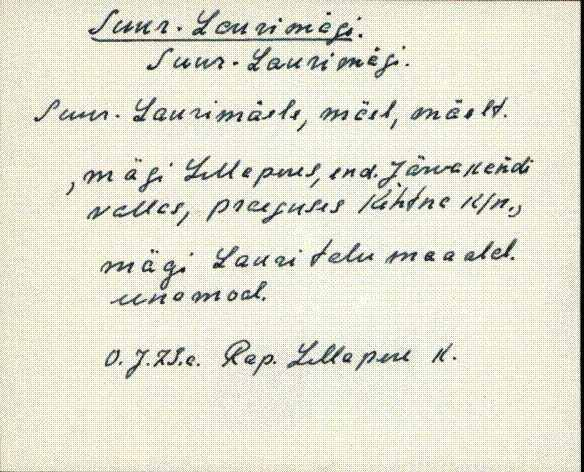 Suur-Laurimägi.
Suur-Laurimägi.
Suur-Laurimäele, mäel, mäelt.
, mägi Lellapere, end. Järvakandi
vallas, praeguses Kehtna k/n.,
mägi Lauri talu maadel.
unamad.
O. J. 23.a. Rap. Lellapere k.